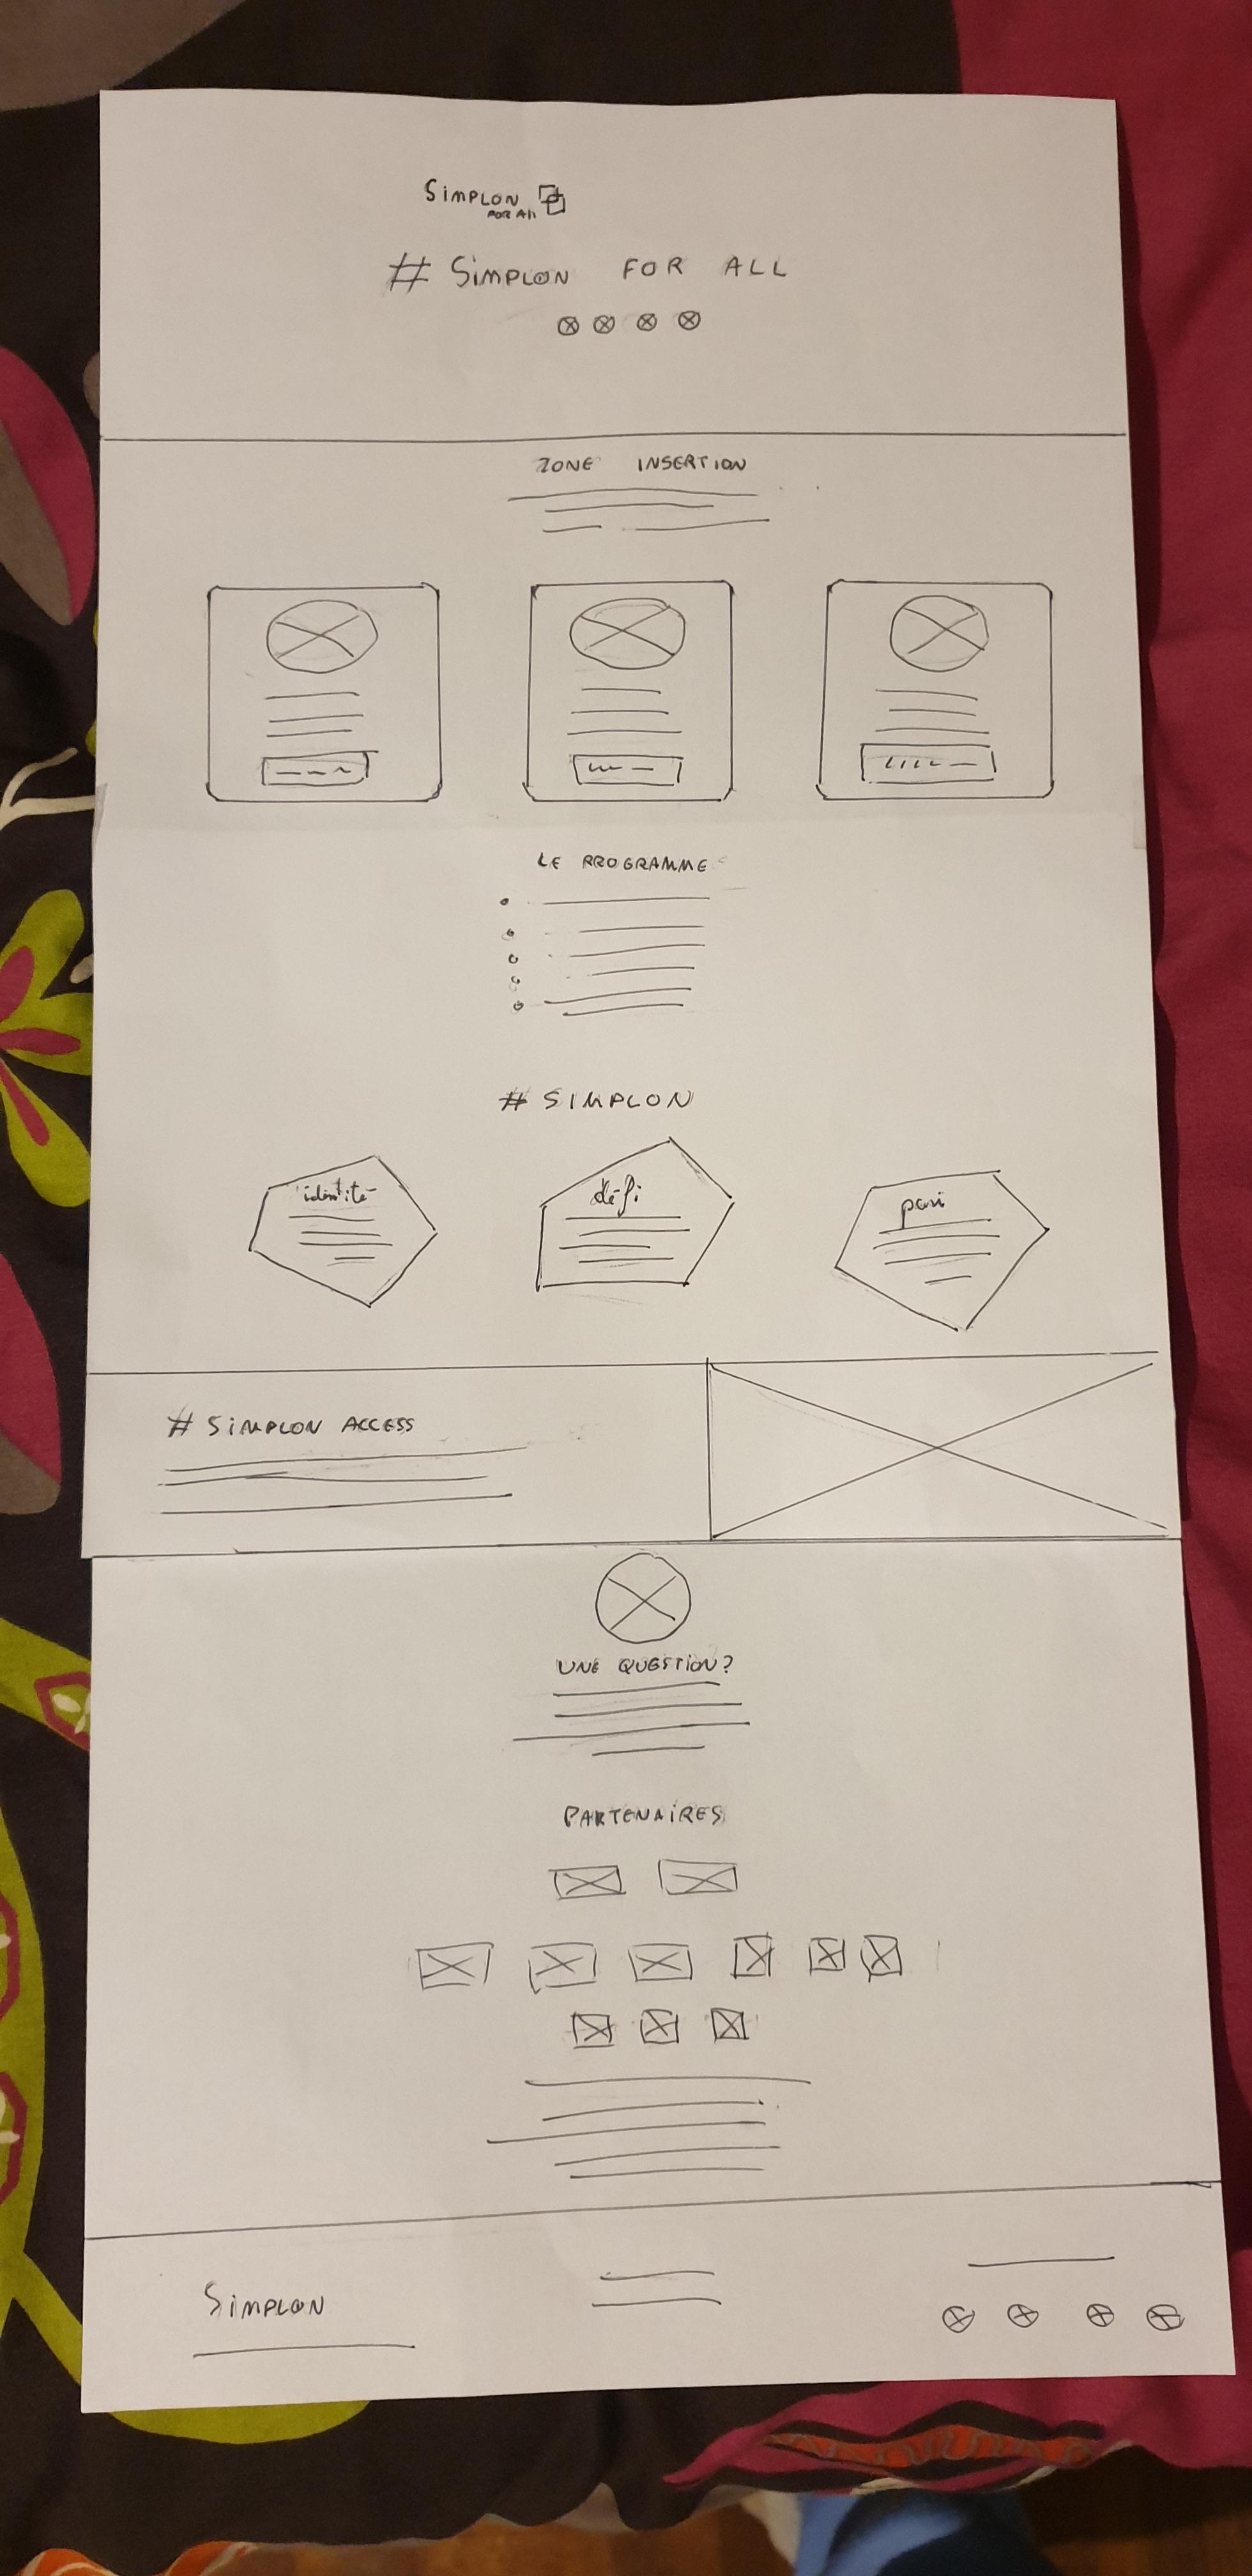 SiMPLON
FOR All
# SiMPLON FOR ALL
ZONE INSERTION
LE PROGRAMME
# SIMPLON
identité
défi
pari
# SiMPLON ACCESS
UNE QUESTION?
PARTENAiRES
SiMPLON